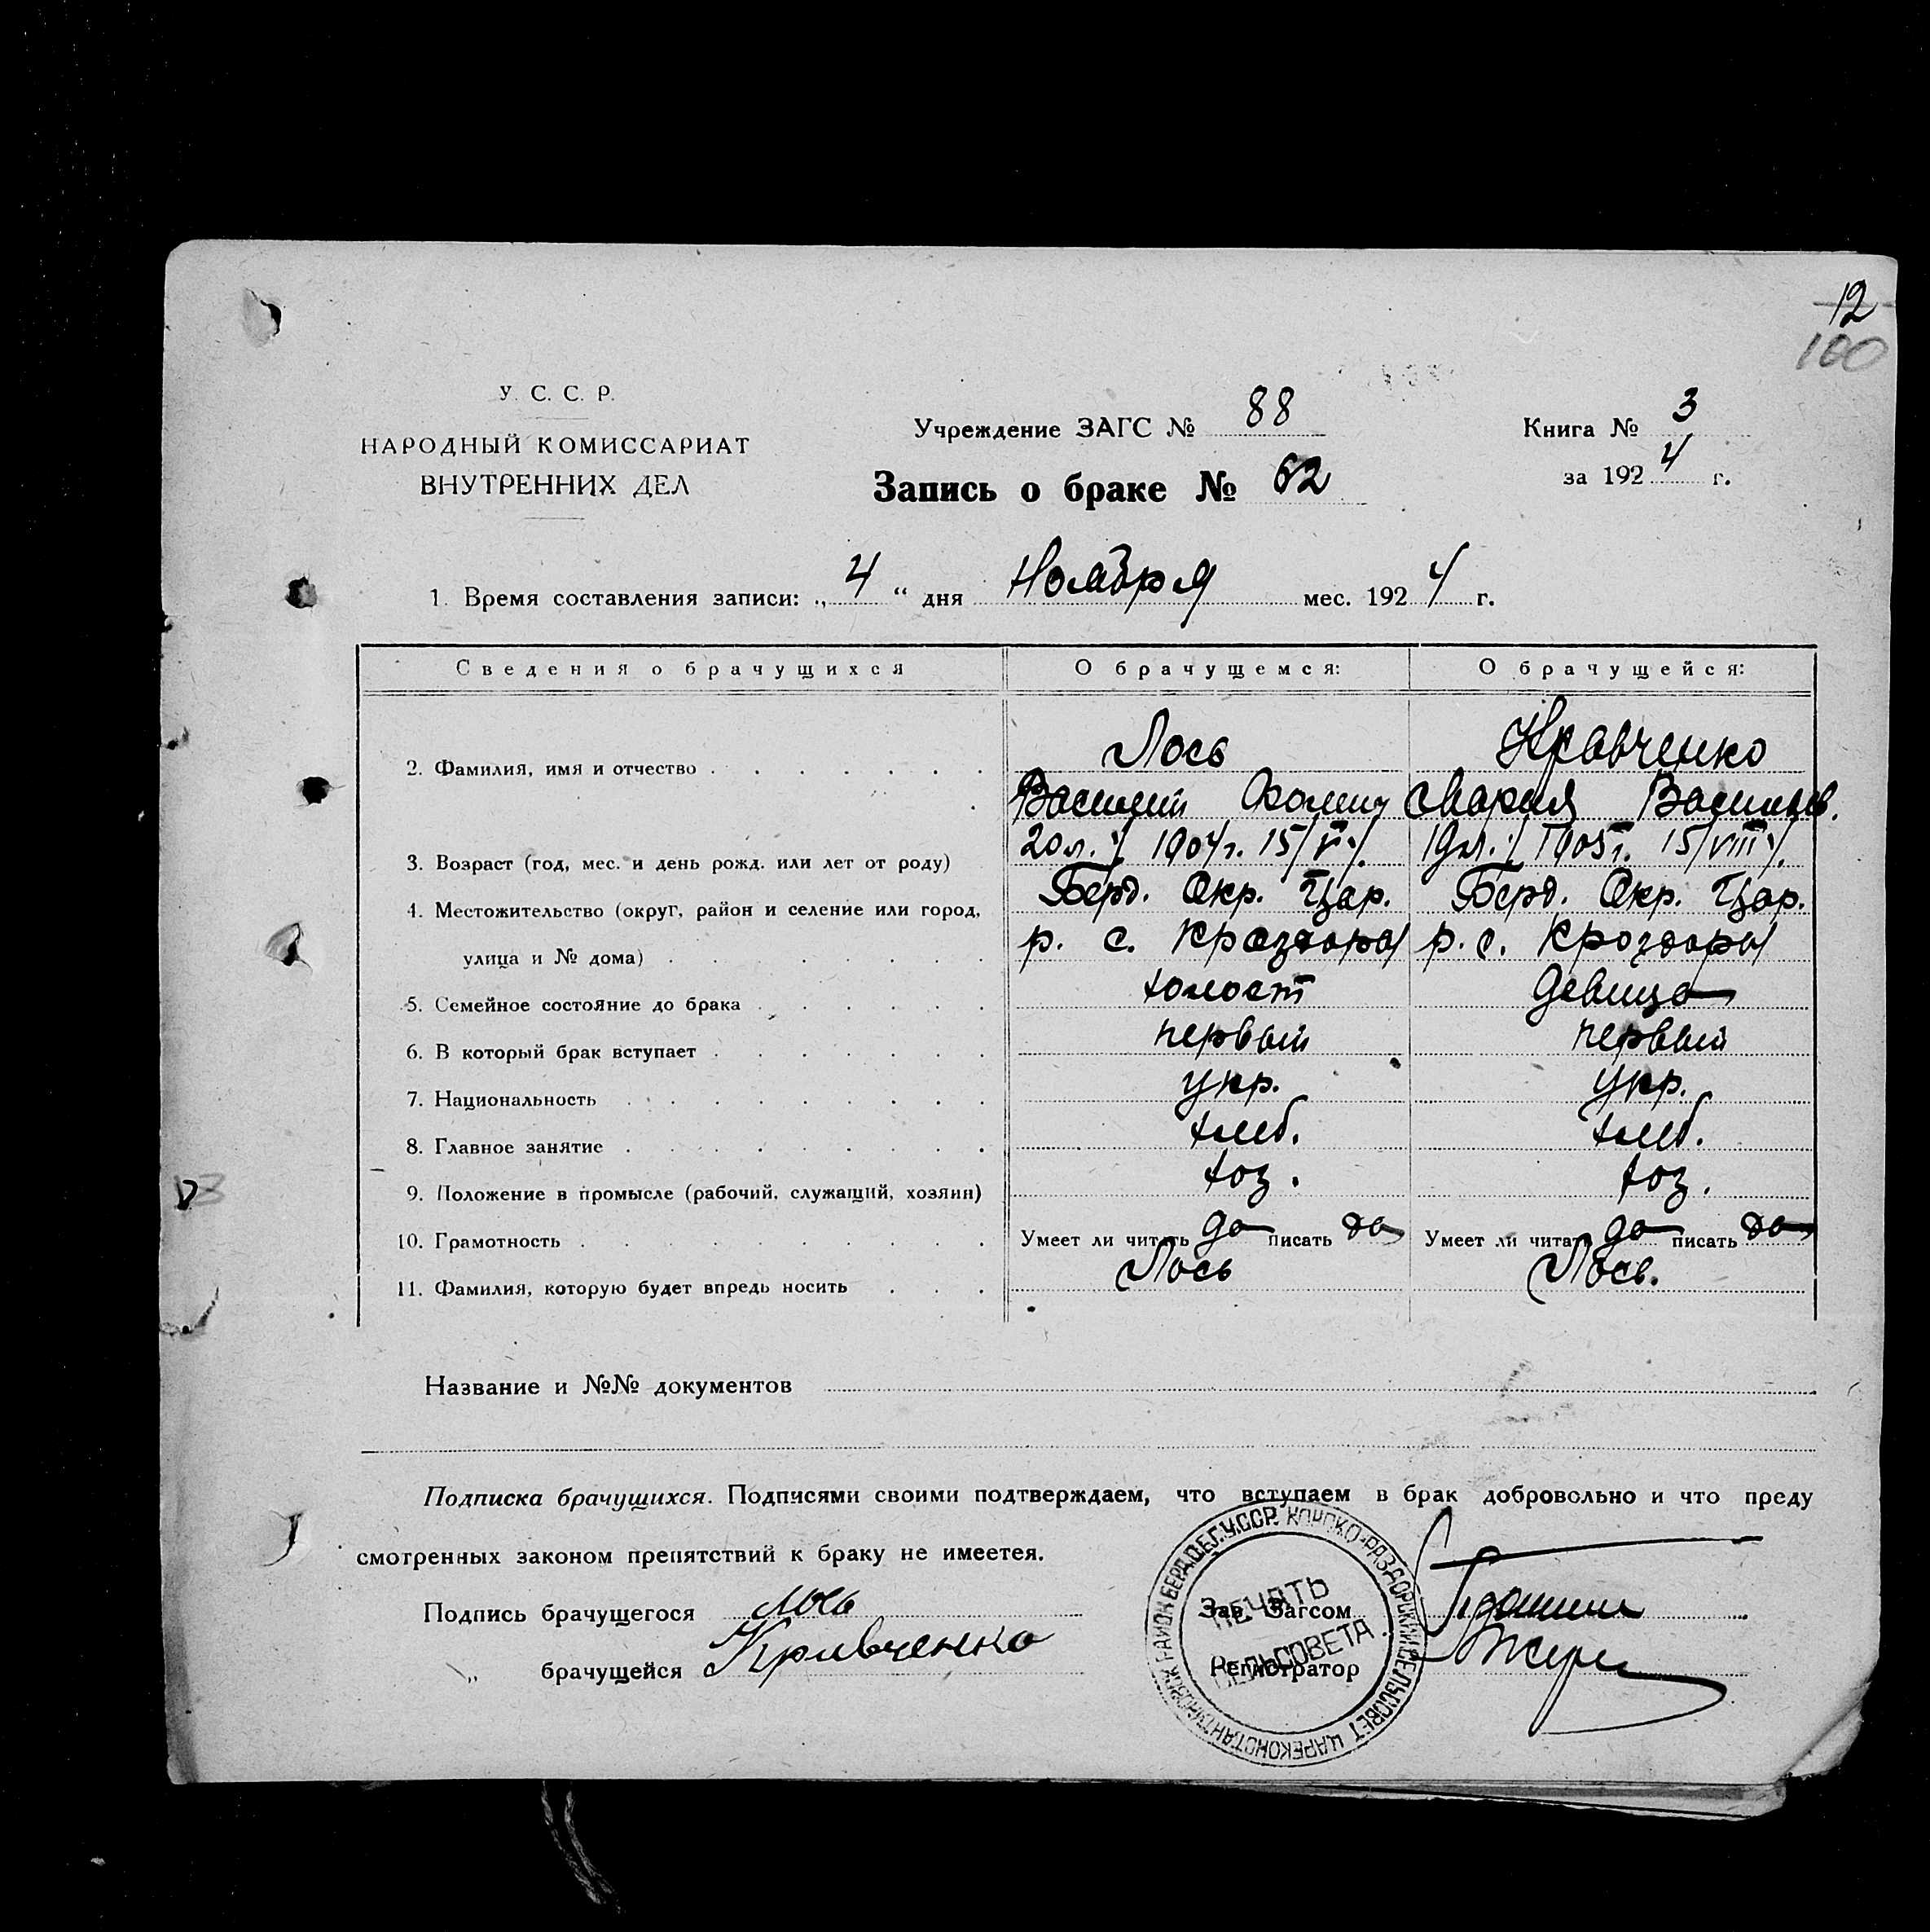 12
100
У. С. С. Р.
НАРОДНЫЙ КОМИССАРИАТ
ВНУТРЕННИХ ДЕЛ
Учреждение ЗАГС № 88
Книга № 3
за 1924 г.
Запись о браке № 62
1. Время составления записи: „4“ дня Ноября мес. 1924 г.
Сведения о брачущихся О брачущемся: О брачущейся:
2. Фамилия, имя и отчество Лось Кравченко
Василий Мария Васильев.
3. Возраст (год, мес. и день рожд. или лет от роду) 20л. 1904г. 15/V 19л. 1905г. 15/VIII
4. Местожительство (округ, район и селение или город, Берд. Окр. Цар. Берд. Окр. Цар.
улица и № дома) р. с. Краздоры р. с. Краздоры
5. Семейное состояние до брака холост девица
6. В который брак вступает первый первый
7. Национальность укр. укр.
8. Главное занятие хлеб. хлеб.
9. Положение в промысле (рабочий, служащий, хозяин) хоз. хоз.
10. Грамотность Умеет ли читать да писать да Умеет ли читать да писать да
11. Фамилия, которую будет впредь носить Лось Лось.
Название и №№ документов
Подписка брачущихся. Подписями своими подтверждаем, что вступаем в брак добровольно и что преду
смотренных законом препятствий к браку не имеетея.
Подпись брачущегося Лось
„ брачущейся Кравченко
Зав. Загсом
Регистратор
КОНСКО-РАЗДОРСКИЙ СЕЛЬСОВЕТ ЦАРЕКОНСТАНТИНОВСК РАЙОН БЕРД. У.ССР.
ПЕЧАТЬ
СЕЛЬСОВЕТА